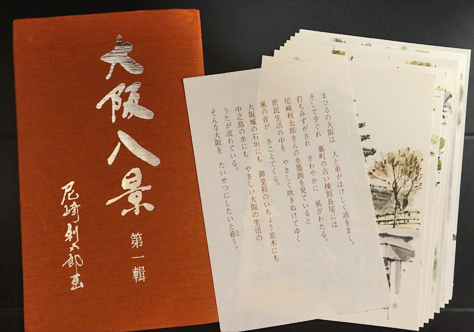 大阪八景
第一輯
尼崎利太郎画
まひるの大阪は 人と車がはげしく渦をまく。
そして夕ぐれ 裏町の古い棟割長屋には
打ちみずがさ さわやかに 風がわたる。
尼崎利太郎さんの水墨画を見ていると
庶民生活の中を やさしく吹きぬけてゆく
風の音が きこえてくる。
大阪城の石垣にも 御堂筋のいちょう並木にも
中之島の水にも やさしい大阪の生活の
うたが流れている。
そんな大阪を たいせつにしたいと希う。